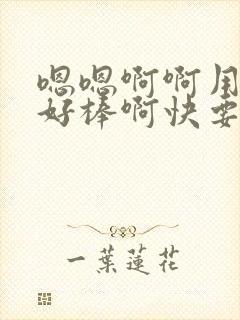 嗯嗯啊啊用
好棒啊快要
一葉蓮花